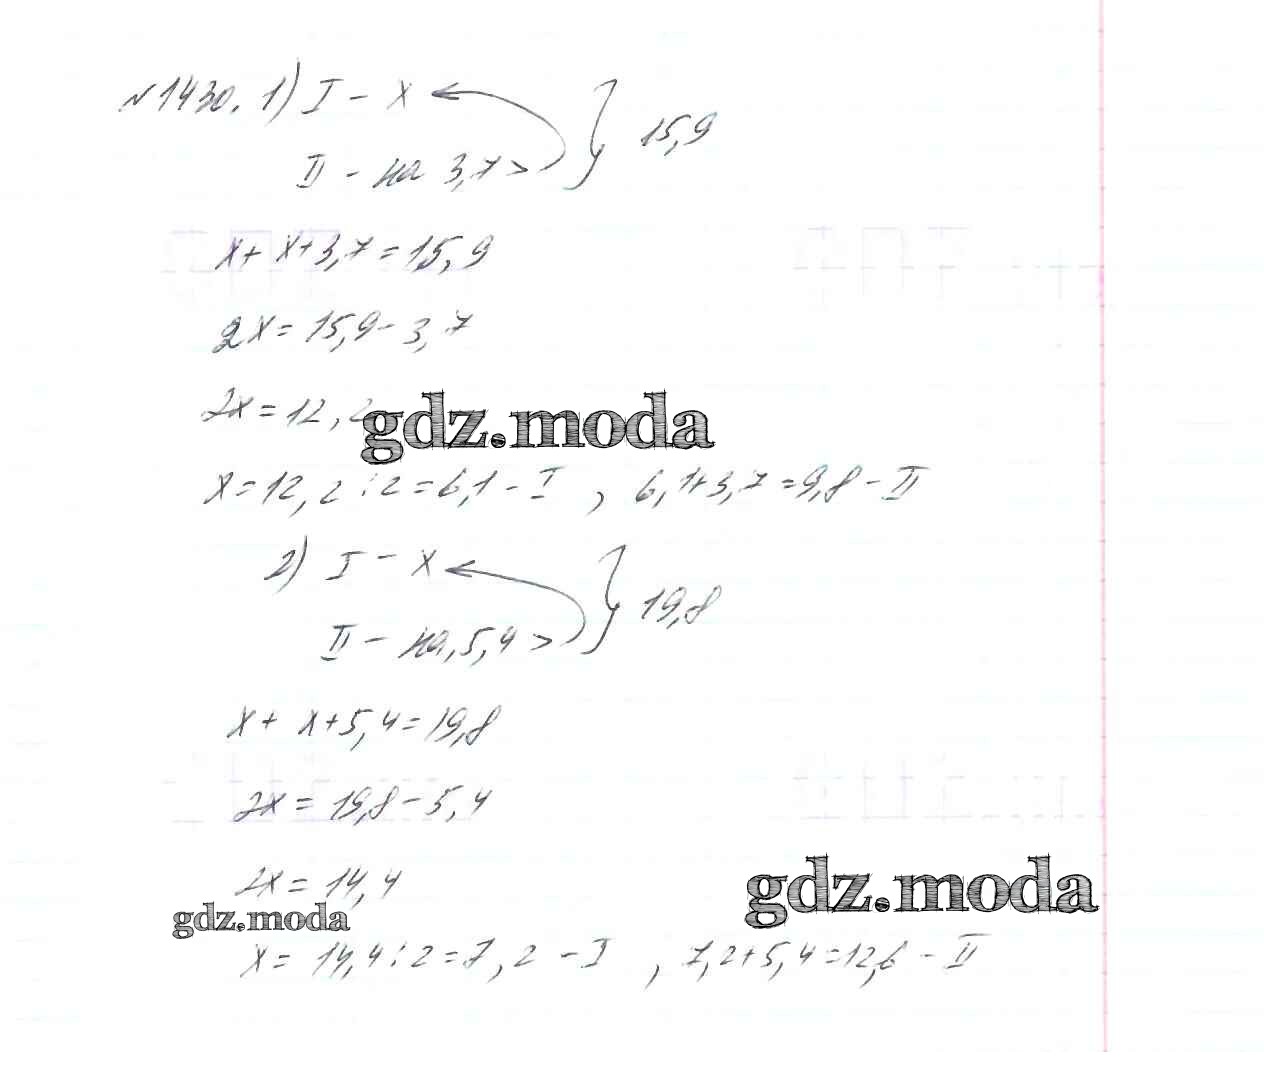 №1430. 1) I - x
II - на 3,7 >
15,9
x + x + 3,7 = 15,9
2x = 15,9 - 3,7
2x = 12,2
gdz.moda
x = 12,2 : 2 = 6,1 - I , 6,1+3,7 = 9,8 - II
2) I - x
II - на 5,4 >
19,8
x + x + 5,4 = 19,8
2x = 19,8 - 5,4
2x = 14,4
gdz.moda
gdz.moda
x = 14,4 : 2 = 7,2 - I , 7,2 + 5,4 = 12,6 - II